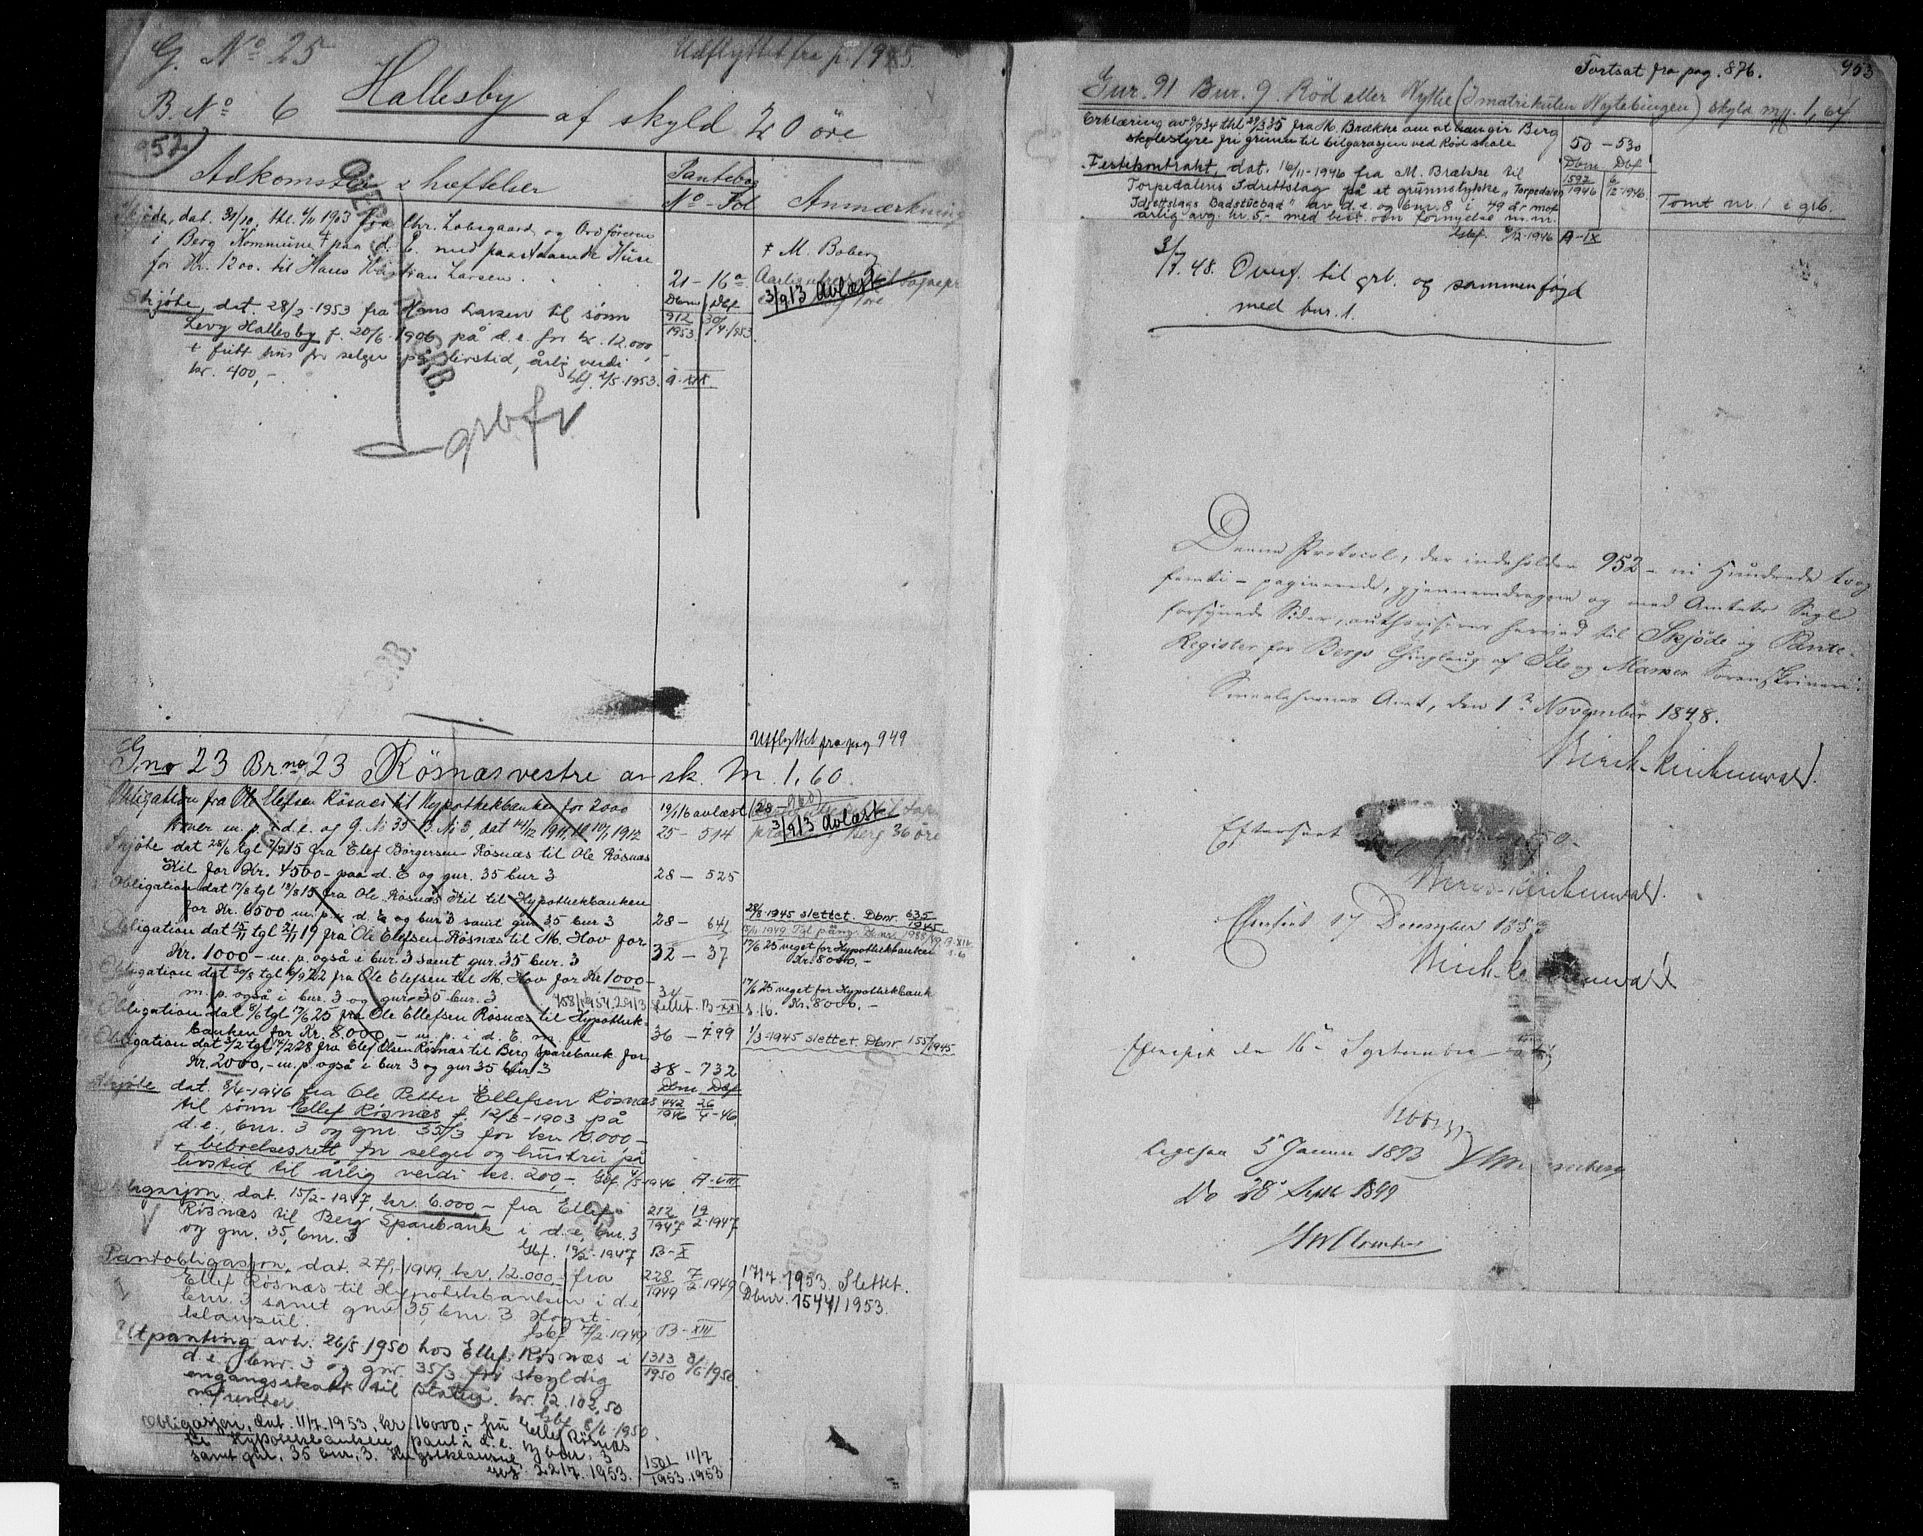 G. No 25
Udflyttet fra p. 1945.
B. No 6 Hallesby af skyld 20 öre
952
Adkomster & hæftelser
Pantebog
No - Fol
Anmærkning
Skjöde, dat. 31/10, thl. 4/11 1903 fra Chr. Labsgaard og Ordföreren
i Berg Kommune paa d. E. med paastaaende Huse
for Kr. 1200. til Hans Kristian Larsen.
21 - 16a
† M. Boberg
3/9 13 Avlæst
OVERF. TIL GRB.
Skjöte, dat. 28/2-1953 fra Hans Larsen til sönn
Levy Hallesby f. 20/6-1906 på d.e. for kr. 12.000,
+ fritt hus for selger på livstid, årlig verdi
kr. 400,-. gbf. 2/5-1953.
Dbnr Dbf
912/1953 30/4 1953.
A-XIX
grbfr
GRB.
Utflyttet fra pag 949
Gno 23 Brno 23 Rösnæs vestre av sk. M. 1,60.
Obligation fra Ole Elefsen Rösnæs til Hypothekbanken for 2000
kroner m. p. i d. e. og G. No 35 B. No 3, dat 14/12 1911, tl 10/1 1912
19/1 16 avlæst
25 - 514
3/9 13 Avlæst
Skjöte dat 28/6 tgl 7/7 15 fra Elef Börgersen Rösnæs til Ole Rösnæs
Kil for Kr. 4500 - paa d. E og gur. 35 bur 3
28 - 525
Obligation dat 17/8 tgl 19/8 15 fra Ole Rösnæs Kil til Hypothekbanken
for Kr. 6500 m. p. i d. E og bur 3 samt gur 35 bur 3
28 - 641
28/3-1945 slettet. Dbnr. 635/1945
Obligation dat 15/11 tgl 21/11 19 fra Ole Elefsen Rösnæs til M. Hov for
Kr. 1000 - m. p. også i bur. 3 samt gur. 35 bur. 3
32 - 37
17/6 25 veget for Hypothekbanken
Kr. 8000,-
Obligation dat 30/8 tgl 6/9 22 fra Ole Elefsen til M. Hov for Kr 1000 -
m. p. også i bur. 3 og gur 35 bur. 3
34
slettet. B-XXI s. 16.
17/6 25 veget for Hypothekbank
Kr. 8000,-
Obligation dat 8/6 tgl 17/6 25 fra Ole Ellefsen Rösnæs til Hypothek-
banken for Kr. 8.000 - m. p. i d. E. m. fl
36 - 799
1/3-1945 slettet Dbnr 155/1945
Obligation dat 3/2 tgl 14/2 28 fra Elef Olsen Rösnæs til Berg Sparebank for
Kr. 2000,- m. p. også i bur 3 og gur 35 bur. 3
38 - 732
Skjöte dat. 8/4-1946 fra Ole Petter Ellefsen Rösnæs
til sönn Ellef Rösnæs f. 12/3-1903 på
d.e., bnr. 3 og gnr 35/3 for kr. 10.000 -
+ bebrelsesrett for selger og hustru på
livstid til årlig verdi kr. 200,-. gbf. 4/5-1946
Dbnr Dbf
442/1946 26/4-46
A-VIII
Obligasjon dat. 15/2-1947, kr. 6.000,- fra Ellef
Rösnæs til Berg Sparebank i d.e, bnr. 3
og gnr. 35, bnr. 3
gbf. 19/2-1947
212/1947 19/2-1947
B-X
Pantobligasjon, dat. 27/1-1949, kr. 12.000,- fra
Ellef Rösnæs til Hypotekbanken i d.e
bnr. 3 samt gnr 35, bnr. 3 Høyst-
klausul.
gbf 7/2-1949
228/1949 7/2-1949
B-XIII
17/7 1953. Slettet.
Dbnr. 1544/1953.
Utpanting avh. 26/5 1950 hos Ellef Rösnæs i
d.e. bnr. 3 og gnr. 35/3 for skyldig
engangsskatt til Staten kr. 12.102,50
m/renter.
gbf. 8/6 1950
1313/1950 8/6 1950
Obligasjon, dat. 11/7.1953, kr. 16000,- fra Ellef Rösnæs
til Hypotekbanken, pant i d.e. og bnr. 3
samt gnr. 35 bnr. 3. Høystklausul.
gbf. 22/7. 1953.
1501/1953 11/7 1953
Fortsat fra pag. 876.
953
Gur. 91 Bur. 9 Röd eller Nythe (I matrikulen Nytebingen) skyld mrk. 1,64
Erklæring av 9/9 34 thl 29/3 35 fra M. Brække om at han gir Berg
skolestyre fri grunn til bilgarasjen ved Röd skole
50 - 530
Festekontrakt, dat. 16/11-1946 fra M. Brække til
Torpedalens Idrettslag på et grunnstykke „Torpedalen
Idrettslags Badstuebad" av d.e. og bnr. 8 i 49 år mot
årlig avg. kr. 5,- med best. om fornyelse m.m.
gbf. 9/12-1946
Dbnr Dbf
1592/1946 6/12-1946
A-IX
Tomt nr. 1 i grb.
3/7.48. Overf. til grb. og sammenföyd
med bnr. 1.
Denne Protocol, der indeholder 952 - ni Hundrede to og
femti - paginerede, gjennemdragne og med Amtets Segl
forsynede Sider, authoriseres herved til Skjöde og Pante-
Register for Bergs Thinglaug af Ide og Marker Sorenskriveri.
Smaalehnenes Amt, den 1ste November 1848.
Birch-Reichenwald.
Efterseet 50.
Birch-Reichenwald.
Efterseet 17 December 1853
Birch-Reichenwald
Eftersete den 16de September
Ligesaa 5 Januar 1893
Do 28 Septbr 1899